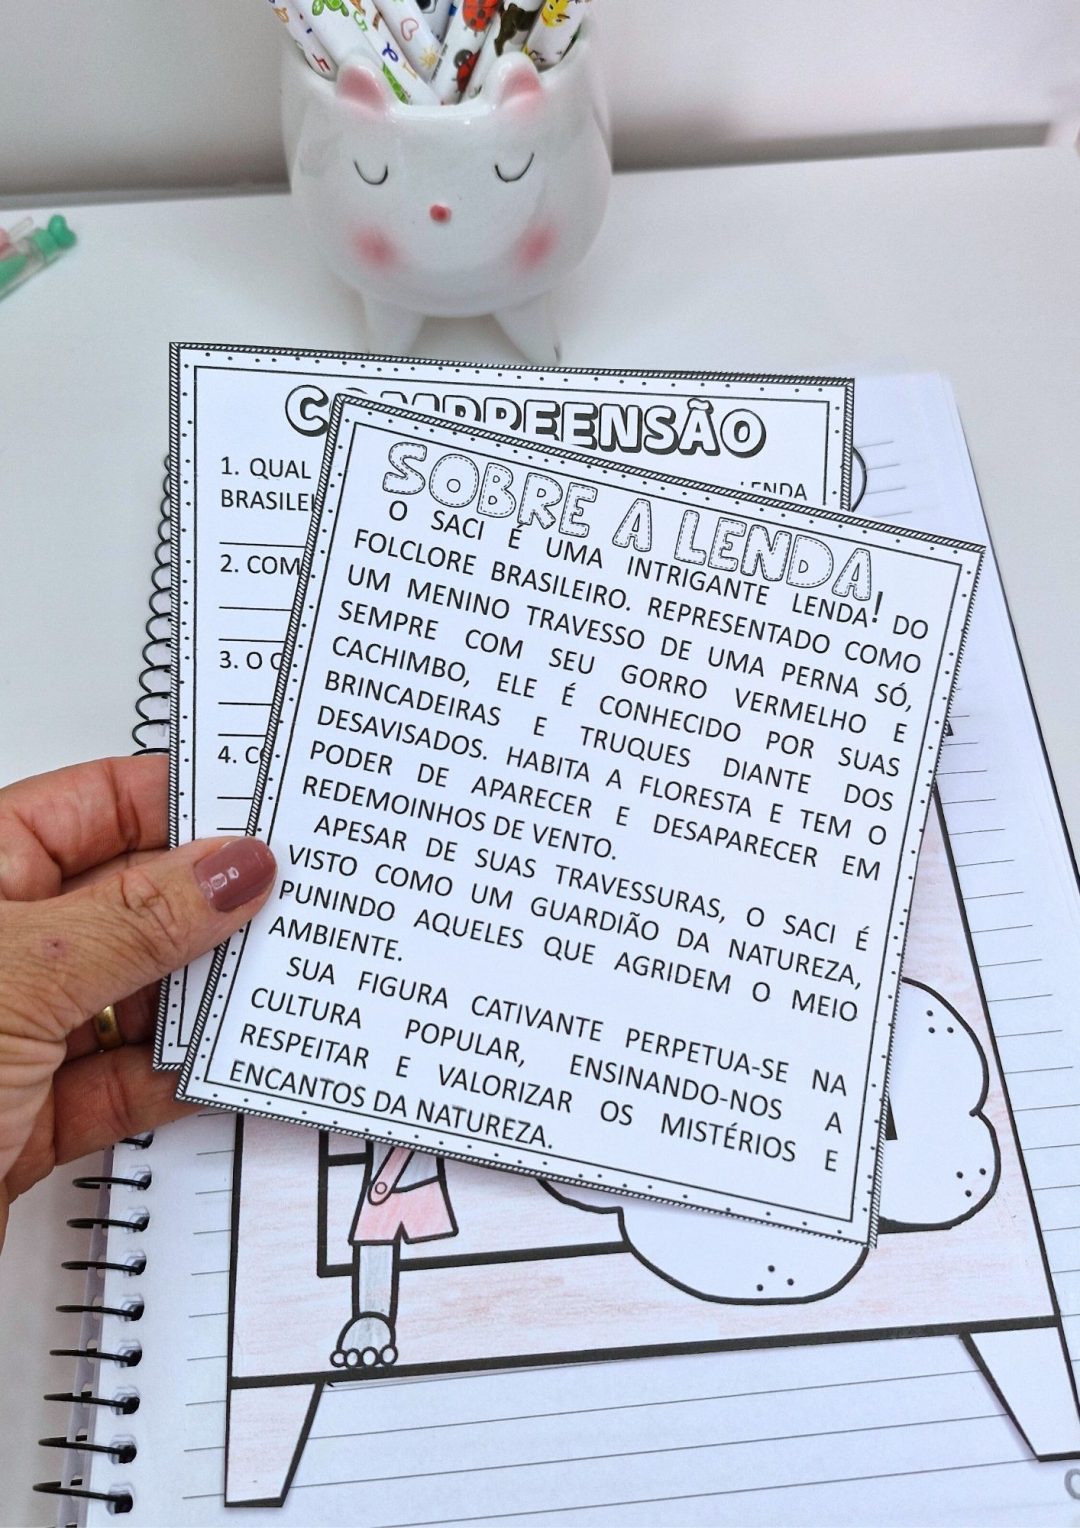 COMPREENSÃO
1. QUAL
LENDA
BRASILEI
2. COM
3. O
4. C
SOBRE A LENDA!
O SACI É UMA INTRIGANTE LENDA DO
FOLCLORE BRASILEIRO. REPRESENTADO COMO
UM MENINO TRAVESSO DE UMA PERNA SÓ,
SEMPRE COM SEU GORRO VERMELHO E
CACHIMBO, ELE É CONHECIDO POR SUAS
BRINCADEIRAS E TRUQUES DIANTE DOS
DESAVISADOS. HABITA A FLORESTA E TEM O
PODER DE APARECER E DESAPARECER EM
REDEMOINHOS DE VENTO.
APESAR DE SUAS TRAVESSURAS, O SACI É
VISTO COMO UM GUARDIÃO DA NATUREZA,
PUNINDO AQUELES QUE AGRIDEM O MEIO
AMBIENTE.
SUA FIGURA CATIVANTE PERPETUA-SE NA
CULTURA POPULAR, ENSINANDO-NOS A
RESPEITAR E VALORIZAR OS MISTÉRIOS E
ENCANTOS DA NATUREZA.